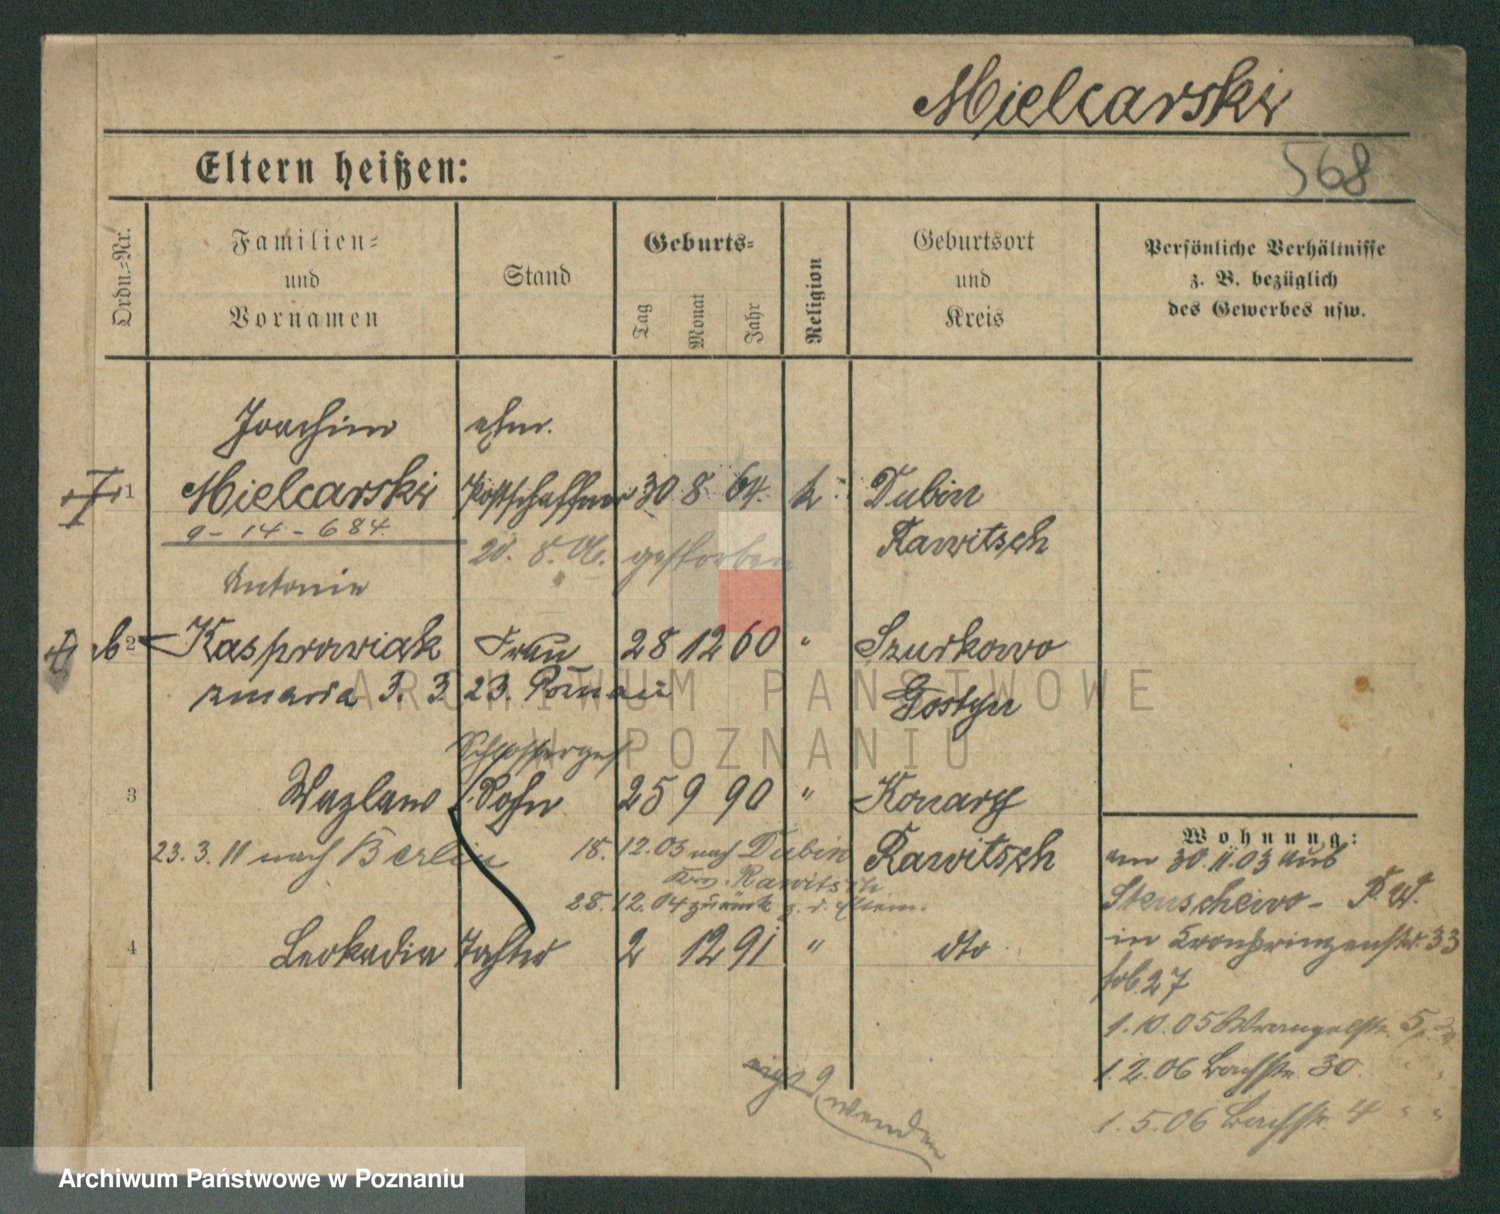 Mielcarski
568
Eltern heißen:
Ordn.-Nr.
Familien-
und
Vornamen
Stand
Geburts-
Tag
Monat
Jahr
Religion
Geburtsort
und
Kreis
Persönliche Verhältnisse
z. B. bezüglich
des Gewerbes usw.
Joachim ehm.
1 Mielcarski Postschaffner 30 8 64. k. Dubin
9-14-684. Rawitsch
20. 8. 06. gestorben
Antonie
ab 2 Kasprowiak Frau 28 12 60 " Szurkowo
zmarła 3. 3. 23. Poznań Gostyn
Schlosserges
3 Wazlaw Sohn 25 9 90 " Konary
23. 3. 11 nach Berlin 18. 12.03 nach Dubin Rawitsch
Krs. Rawitsch
28. 12. 04 zurück z. d. Eltern.
4 Leokadia Tochter 2 12 91 " dto
Wohnung:
am 30.11.03 aus
Stenschewo - P. W.
in Kronprinzenstr. 33
bei 27
1. 10. 05 Wrangelstr. 5
1. 2. 06 Bachstr. 30.
1. 5. 06 Bachstr. 4 " "
wenden
ARCHIWUM PAŃSTWOWE
W POZNANIU
Archiwum Państwowe w Poznaniu